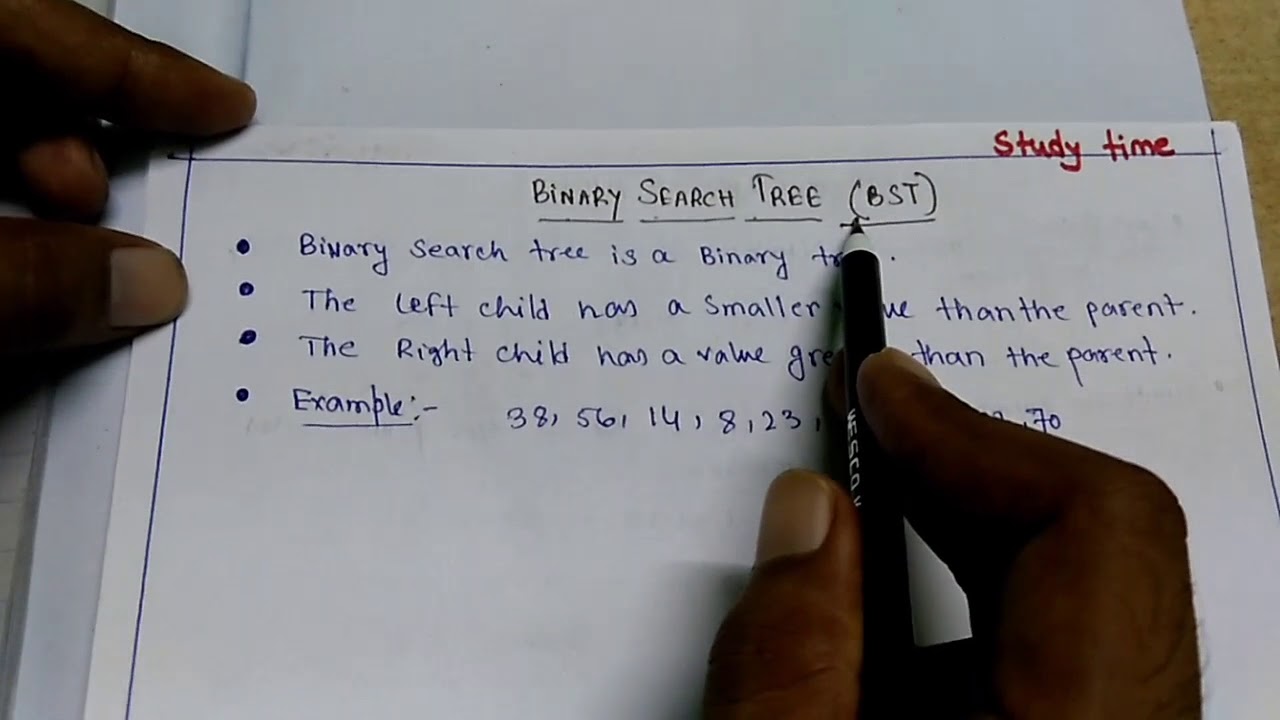 Study time
BINARY SEARCH TREE (BST)
• Binary Search tree is a Binary
• The Left child has a Smaller than the parent.
• The Right child has a value than the parent.
• Example:- 38, 56, 14, 8, 23, , 70